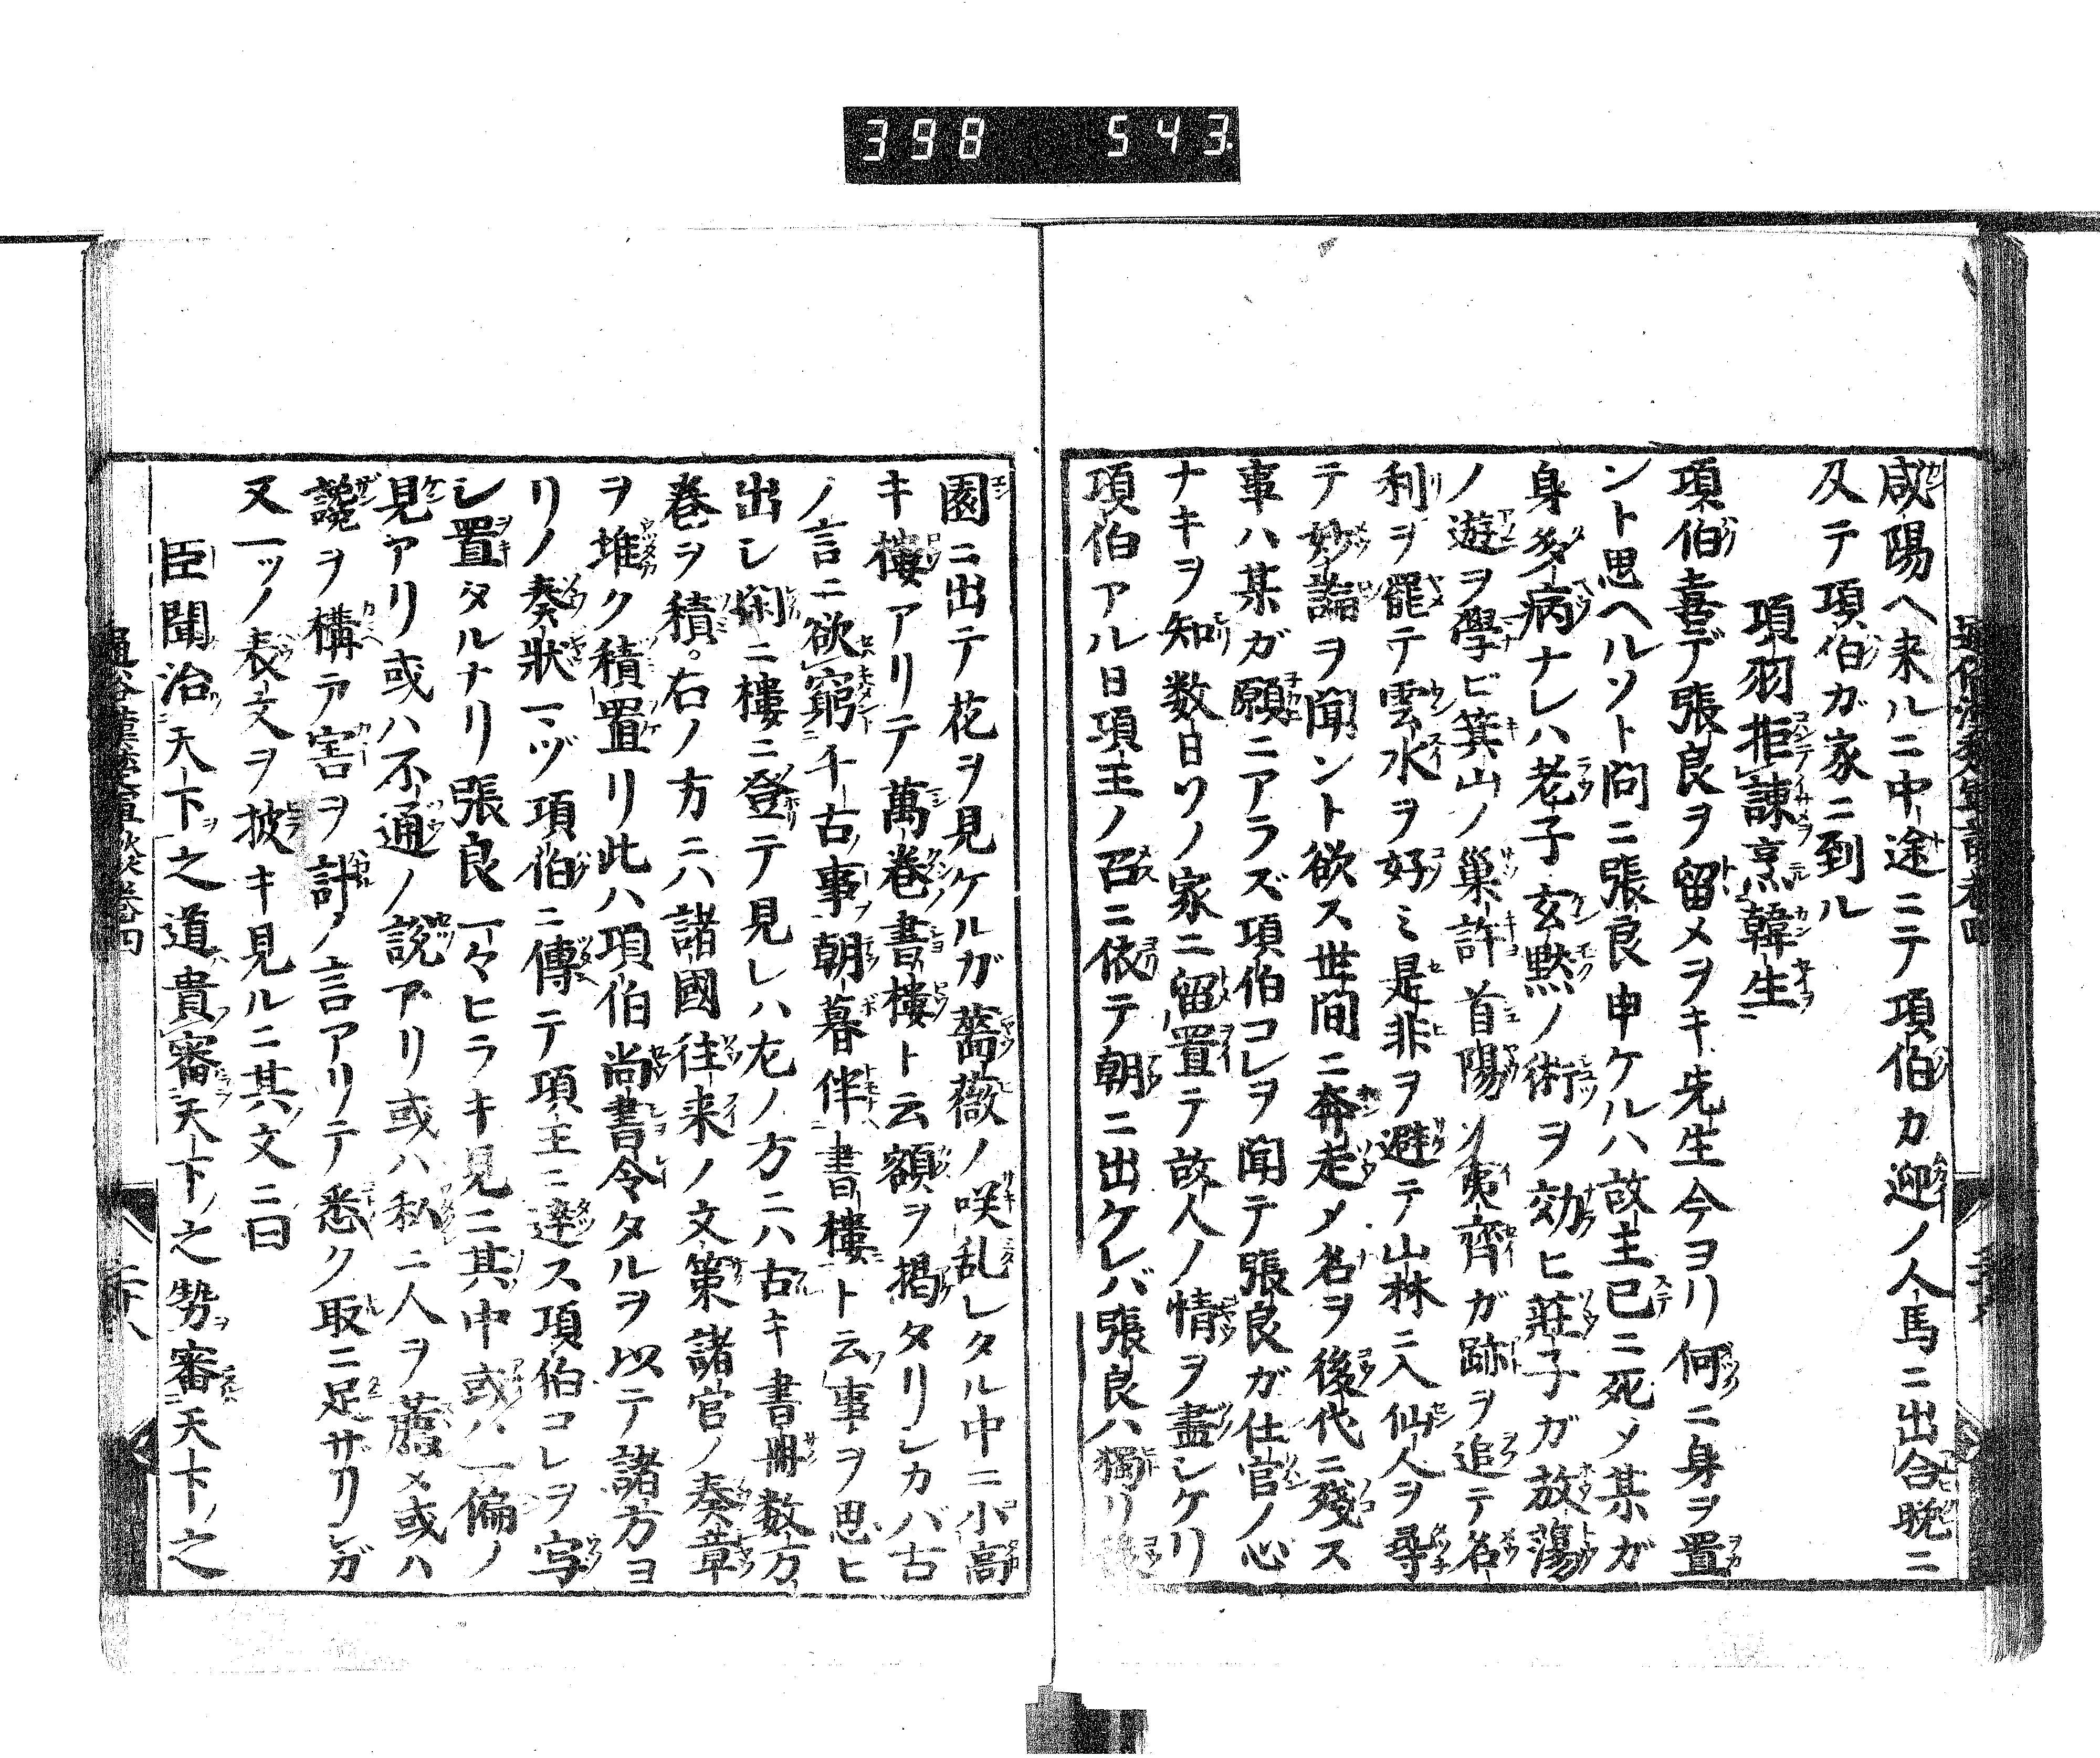 398 543
咸陽ヘ来ルニ中途ニテ項伯カ迎ノ人馬ニ出合晩ニ
及テ項伯ガ家ニ到ル
項羽拒諫烹韓生
項伯喜デ張良ヲ留メヲキ先生今ヨリ何ニ身ヲ置
ント思ヘルソト問ニ張良申ケルハ故主已ニ死メ某ガ
身多病ナレハ老子玄黙ノ術ヲ効ヒ莊子ガ放蕩
ノ遊ヲ學ビ箕山ノ巣許首陽ノ夷齊ガ跡ヲ追テ名
利ヲ罷テ雲水ヲ好ミ是非ヲ避テ山林ニ入仙人ヲ尋
テ妙論ヲ聞ント欲ス世間ニ奔走メ名ヲ後代ニ殘ス
事ハ某ガ願ニアラズ項伯コレヲ聞テ張良ガ仕官ノ心
ナキヲ知数日ワノ家ニ留置テ故人ノ情ヲ盡シケリ
項伯アル日項王ノ召ニ依テ朝ニ出ケレバ張良ハ獨リ
園ニ出テ花ヲ見ケルガ薔薇ノ咲乱レタル中ニ小高
キ樓アリテ萬巻書樓ト云額ヲ掲タリシカバ古
ノ言ニ欲窮千古事朝暮伴書樓ト云事ヲ思ヒ
出シ閑ニ樓ニ登テ見レハ左ノ方ニハ古キ書冊数万
巻ヲ積。右ノ方ニハ諸國往来ノ文策諸官ノ奏章
ヲ堆ク積置リ此ハ項伯尚書令タルヲ以テ諸方ヨ
リノ奏狀一ヅ項伯ニ傳テ項王ニ達ス項伯コレヲ写
シ置タルナリ張良一々ヒラキ見ニ其中或ハ一偏ノ
見アリ或ハ不通ノ説アリ或ハ私ニ人ヲ薦メ或ハ
讒ヲ構テ害ヲ計ノ言アリテ悉ク取ニ足ザリシガ
又一ッノ表文ヲ披キ見ルニ其文ニ曰
臣聞治天下之道貴審天下之勢審天下之
通俗漢楚軍談巻四